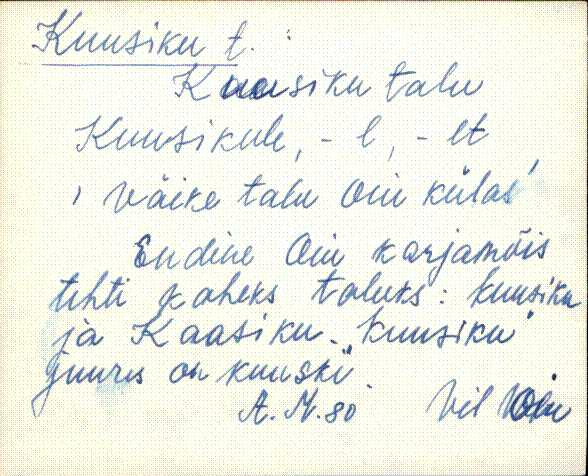 Kuusiku t. :
Kuusiku talu
Kuusikule, - l, - lt
, väike talu Oiu külas'
Endine Oiu karjamõis
tehti kaheks taluks: kuusiku
ja Kaasiku. "Kuusiku"
juures on kuuski".
A. M. 80 Vil